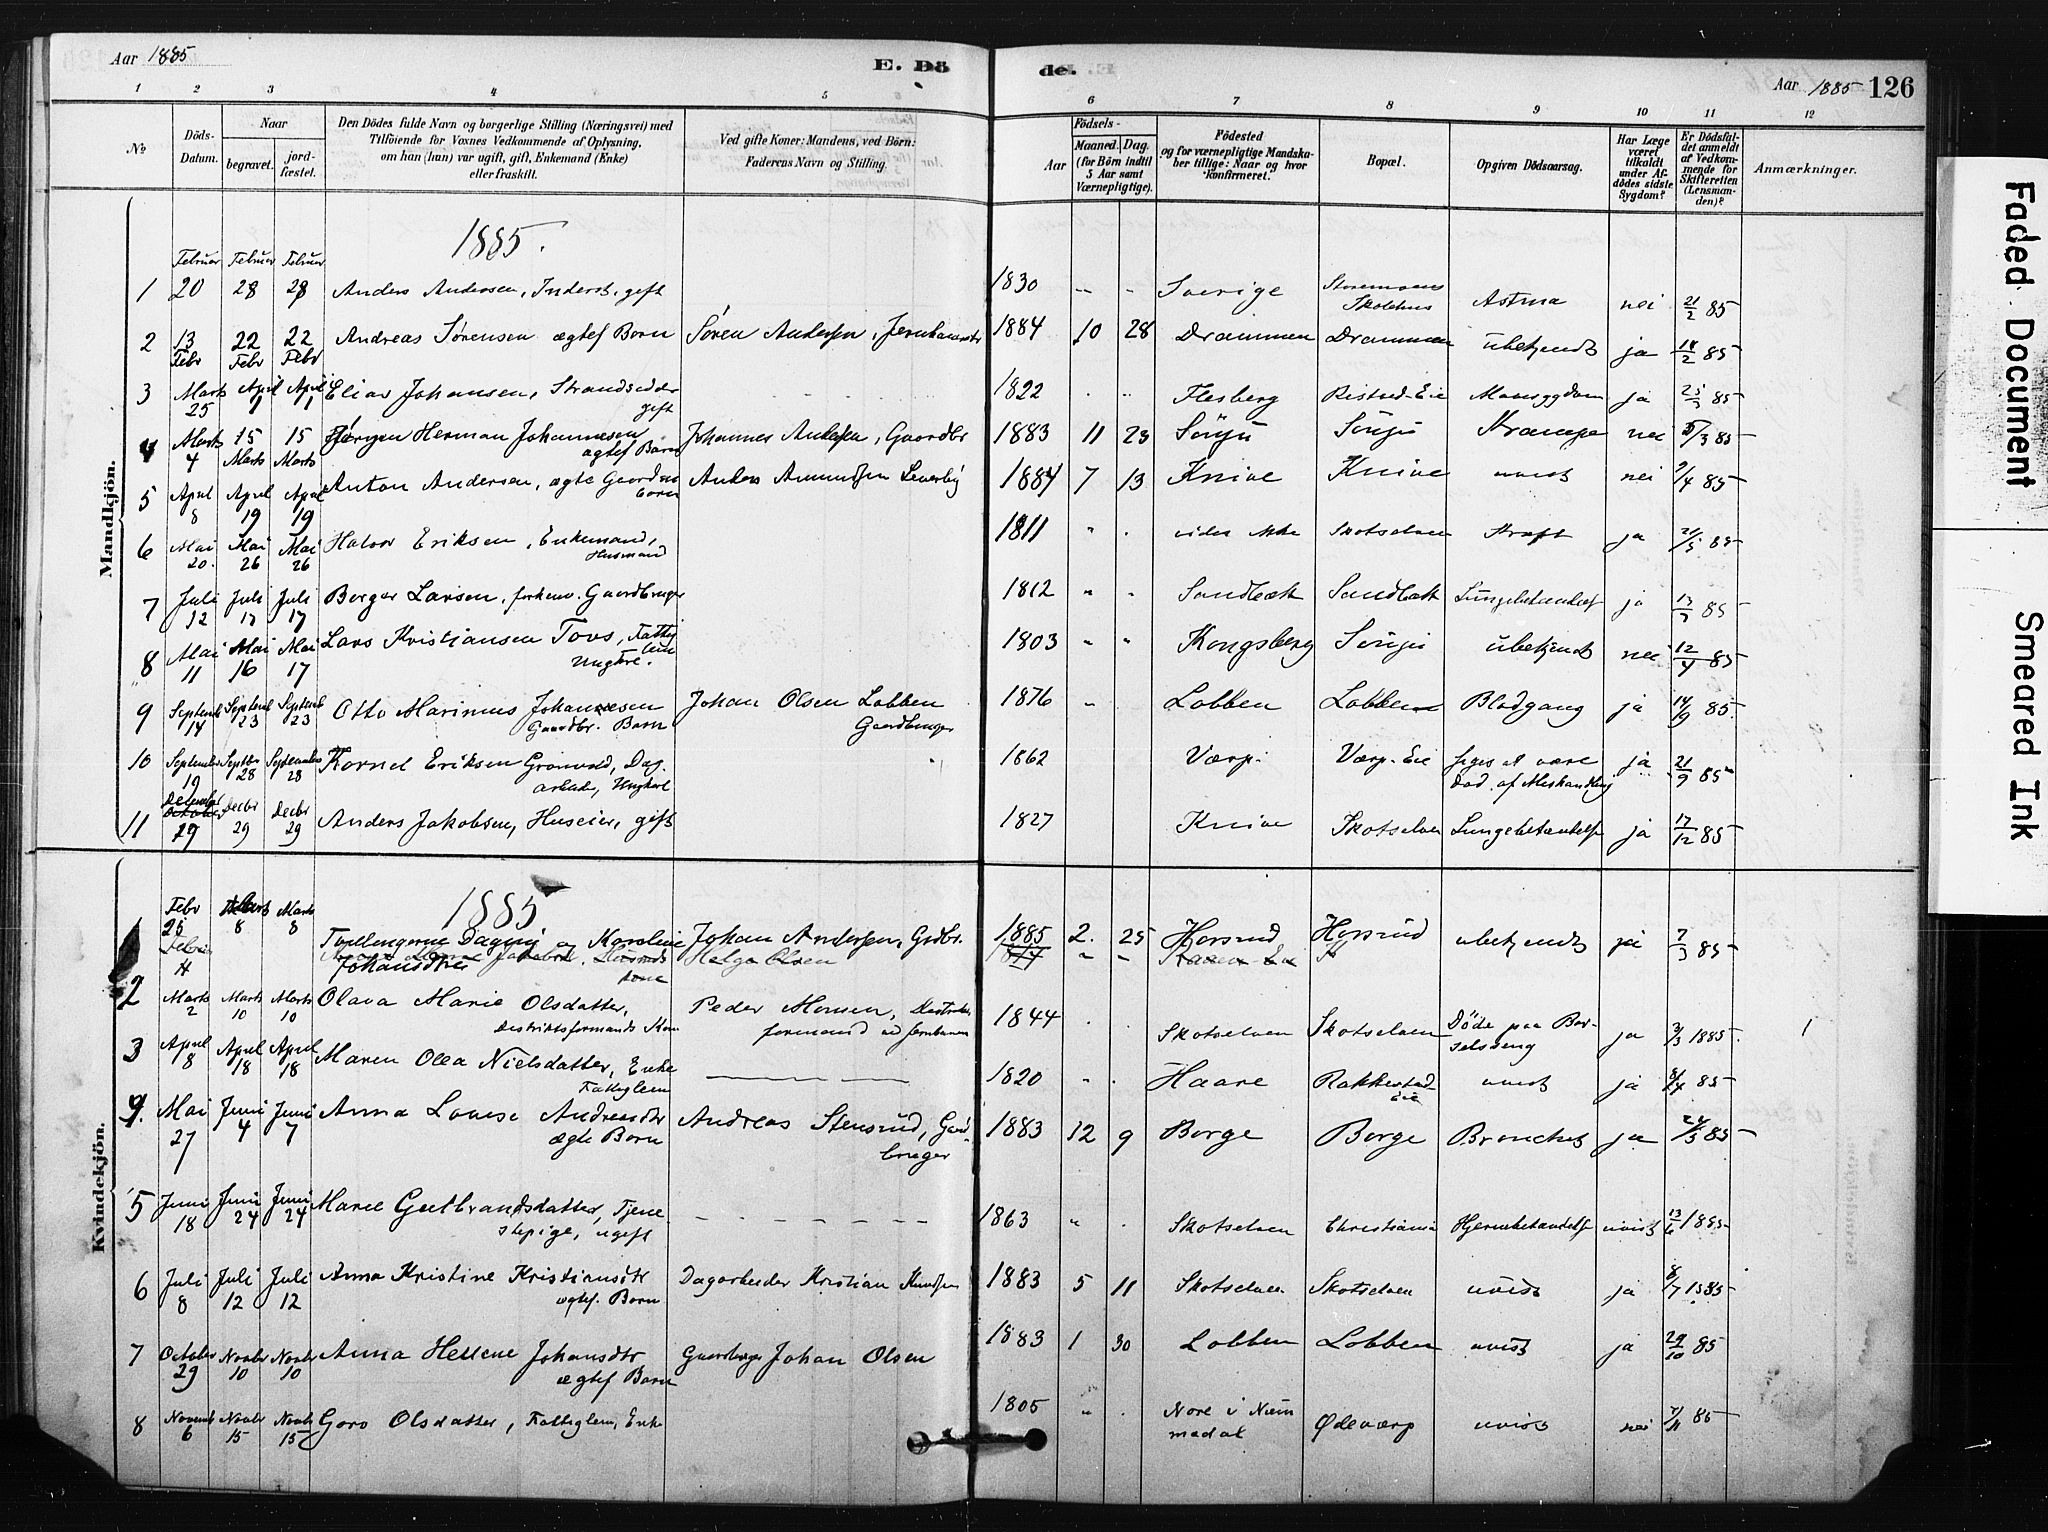 Aar 1885
E. Dö
de.
Aar 1885 126
1 2 3 4 5 6 7 8 9 10 11 12
№
Döds-Datum.
Naar
begravet.
jord-fæstet.
Den Dödes fulde Navn og borgerlige Stilling (Næringsvei) med
Tilföiende for Voxnes Vedkommende af Oplysning,
om han (hun) var ugift, gift, Enkemand (Enke)
eller fraskilt.
Ved gifte Koner: Mandens, ved Börn:
Faderens Navn og Stilling.
Födsels-
Aar
Maaned. Dag.
(for Börn indtil
5 Aar samt
Værnepligtige).
Födested
og for værnepligtige Mandska-
ber tillige: Naar og hvor
konfirmeret.
Bopæl.
Opgiven Dödsaarsag.
Har Læge
været
tilkaldt
under Af-
dödes sidste
Sygdom?
Er Dödsfal-
det anmeldt
af Vedkom-
mende for
Skifteretten
(Lensman-
den)?
Anmærkninger.
Mandkjön.
1885.
Februar Februar Februar
1 20 28 28 Anders Andersen, Inderst, gift 1830 Sverige Astma nei 21/2 85
2 13 Febr 22 Febr 22 Febr Andreas Sørensen ægtef Barn Søren Anderssen, 1884 10 28 Drammen Drammen ubekjendt ja 14/2 85
3 Marts 25 April 1 April 1 Elias Johansen, Strandsidder gift 1822 Flesberg ja 25/3 85
4 Marts 4 15 Marts 15 Marts Jørgen Herman Johannesen ægtef Barn Johannes Anderssen, Gaardbr 1883 11 23 Krampe nei 5/3 85
5 April 8 April 19 April 19 Anton Andersen, ægte Barn Anders Amundsen 1884 7 13 Knive Knive uvist nei 9/4 85
6 Mai 20. Mai 26 Mai 26 Halvor Eriksen, Enkemand, Husmand 1811 Skotselven Kræft ja 21/5 85
7 Juli 12 Juli 17 Juli 17 Borger Larsen, forhenv. Gaardbruger 1812 Sandbæk Sandbæk Lungebetændelse ja 13/7 85
8 Mai 11 Mai 16 Mai 17 Lars Kristiansen Tovs, Fattiglem Ungkrl. 1803 Kongsberg ubekjendt nei 12/4 85
9 Septemb 14 Septemb 23 Septemb 23 Otto Marinus Johannesen Gaardbr. Barn Johan Olsen Lobben Gaardbruger 1876 Lobben Lobben Blodgang ja 14/9 85
10 September 19 Septbr 28 September 28 Kornel Eriksen Grønvold, Dagarbeid, Ungkarl 1862 Værp. Værp. Eie siges at være Død af Meshandling ja 21/9 85
11 December 29 Decbr 29 Decbr 29 Anders Jakobsen, Huseier, gift 1827 Knive Skotselven Lungebetændelse ja 17/12 85
Kvindekjön.
1885
Febr 25 Marts 8 Marts 8 Tvillingerne Dagny og Karoline Johansdtre Johan Anderssen, Grdbr. 1885 2. 25 Horsrud Horsrud ubekjendt ja 7/3 85
Febr 4 Helge Olsen
2 Marts 2 Marts 10 Marts 10 Olava Marie Olsdatter, Destriktsformands Kone Peder Monsen, formand ved Jernbanen 1844 Skotselven Skotselven Døde paa Barselseng ja 3/3 1885.
3 April 8 April 18 April 18 Maren Olea Nielsdatter, Enke Fattiglem 1820 Haare Rakkestad-Eie uvist ja 8/4 85
4. Mai 27 Juni 4 Juni 7 Anna Lovise Andreasdtr ægte Barn Andreas Stensrud, Gaardbruger 1883 12 9 Borge Borge Bronchit ja 85
5 Juni 18 Juni 24 Juni 24 Marie Gulbrandsdatter, Tjenestepige, ugift 1863 Skotselven Christiania Hjernebetændelse uvist 13/6 1885
6 Juli 8 Juli 12 Juli 12 Anna Kristine Kristiansdtr ægtef. Barn Dagarbeider Kristian Knudsen 1883 5 11 Skotselven Skotselven uvist ja 8/7 1885
7 October 29 Novbr 10 Novbr 10 Anna Hellene Johansdtr ægtef Barn Gaardbruger Johan Olsen 1883 1 30 Lobben Lobben uvist ja 29/10 85
8 Novemb 6 Novbr 15 Novbr 15 Goro Olsdatter, Fattiglem, Enke 1805 Nore i Nummedal Ødeværp uvist nei 7/11 85
Faded Document
Smeared Ink